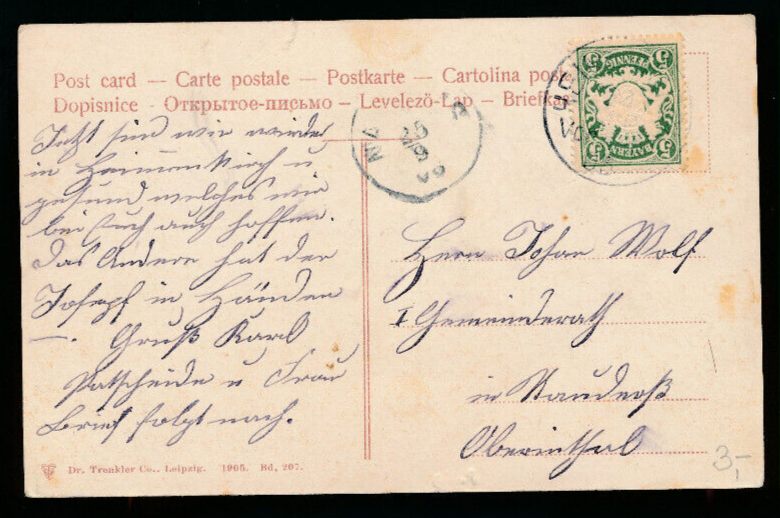 Post card — Carte postale — Postkarte — Cartolina post
Dopisnice - Открытое-письмо - Levelező-Lap - Briefka
5 PFENNIG 5
5 BAYERN 5
Jetzt sind wir wieder
in Heimenkirch u
gesund welches wir
bei Euch auch hoffen.
Das Andere hat der
Josepf in Händen
—. Gruß Karl
Patscheide u Frau
Brief folgt nach.
Herrn Johan Wolf
I Gemeinderath
in Nauders
Oberinthal
Dr. Trenkler Co., Leipzig. 1905. Bd. 207.
3,-